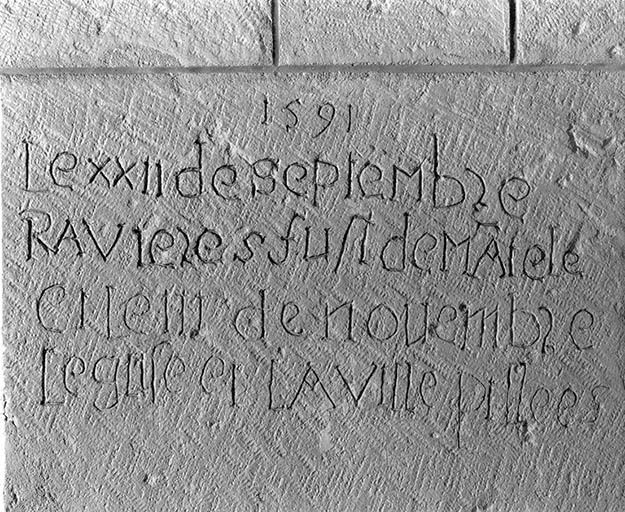 1591
Le xxii de septembre
RAVieres fust de MÃtele
et le iii de novembre
leglise et LA Ville pillees